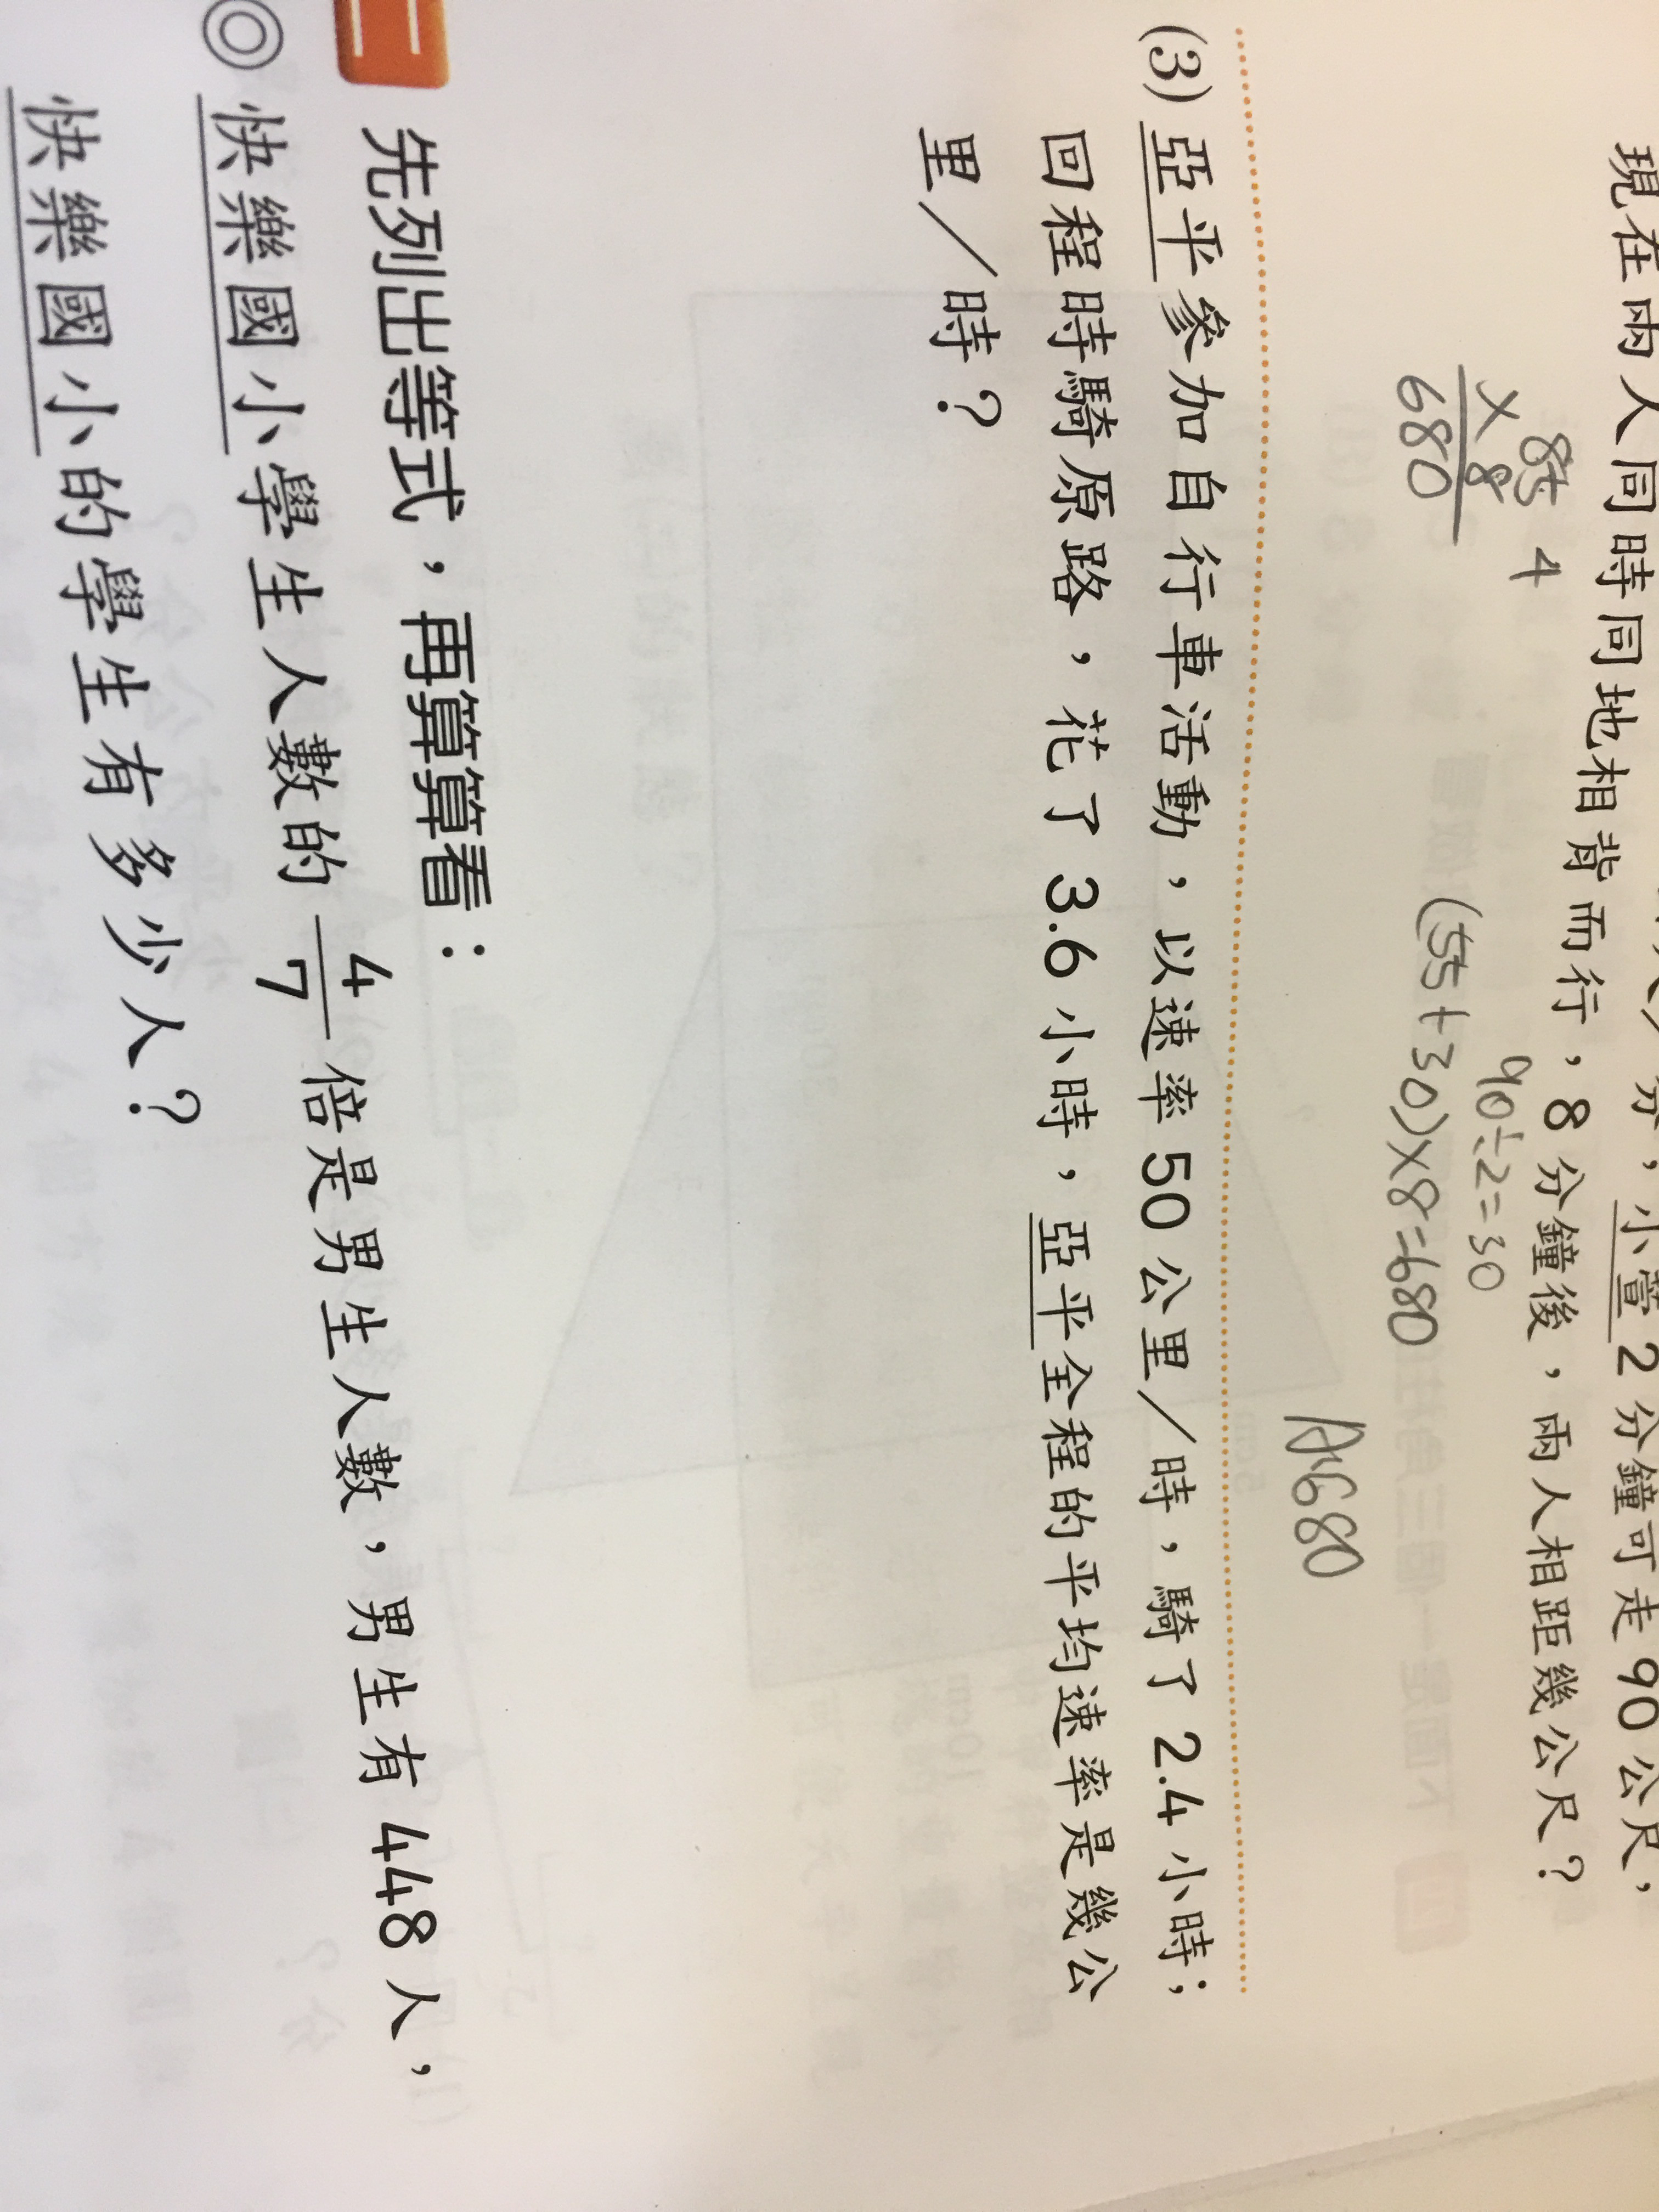 分,小萱2分鐘可走90公尺,
現在兩人同時同地相背而行,8分鐘後,兩人相距幾公尺?
85 4
× 8
680
90÷2=30
(55+30)×8=680
A:680
(3)亞平參加自行車活動,以速率50公里/時,騎了2.4小時;
回程時騎原路,花了3.6小時,亞平全程的平均速率是幾公
里/時?
二 先列出等式,再算算看:
◎快樂國小學生人數的4/7倍是男生人數,男生有448人,
快樂國小的學生有多少人?